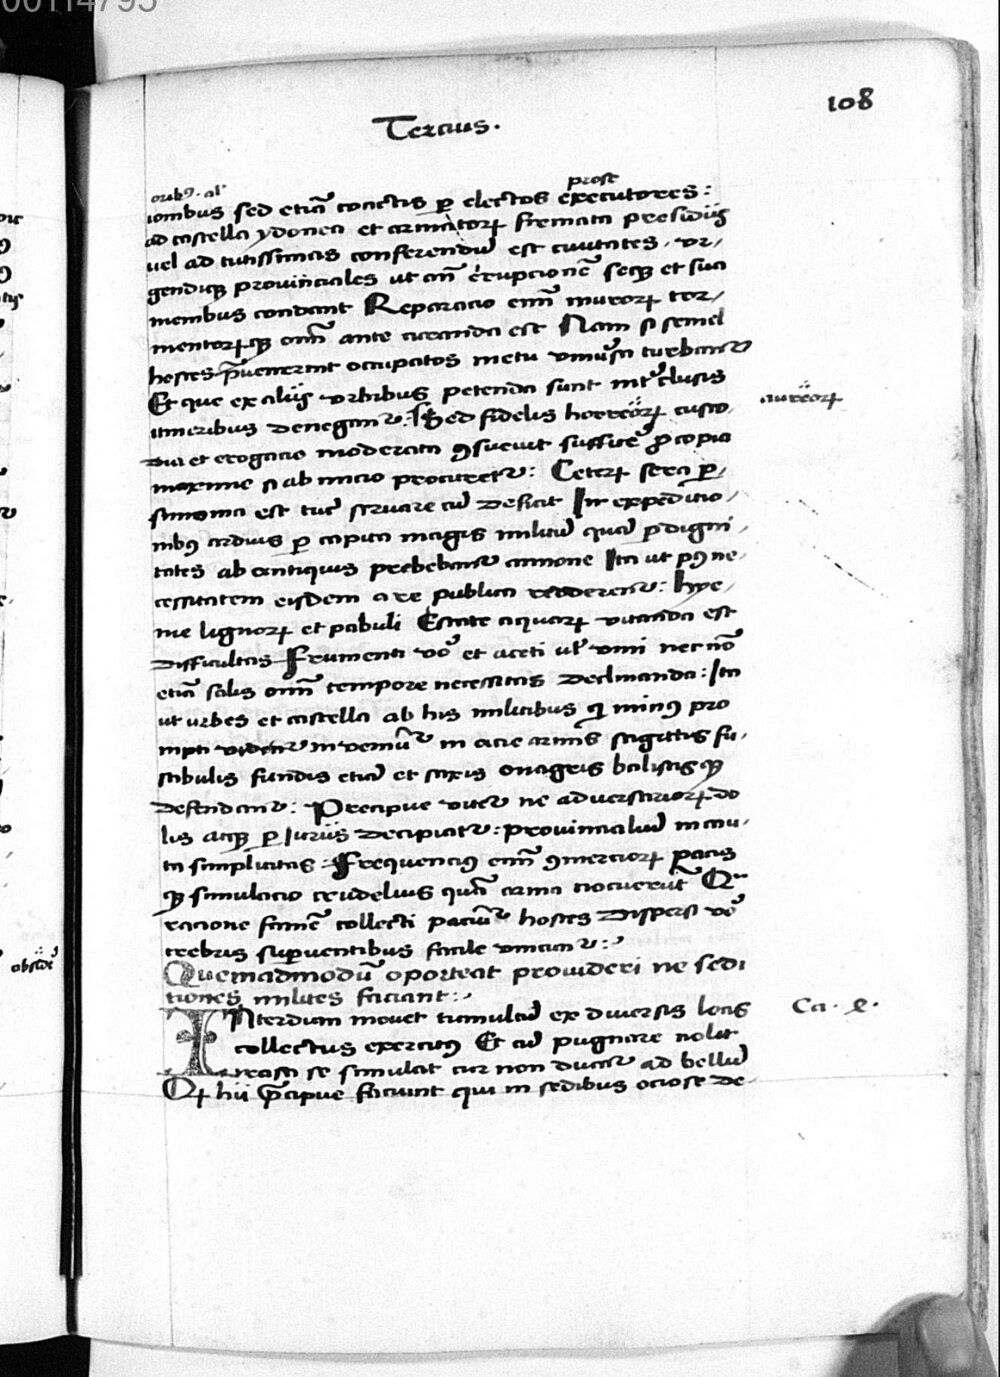 00114795
108
Tercius.
oribꝰ. al'
prose
ionibus sed etiā coactis ꝑ electos exẹcutores:
ad castella ydonea et armatoꝝ firmata presidiis
uel ad tutissimas conferendū est ciuitates. vr,
gendiqꝫ prouinciales ut an̄ erupcionē seqꝫ et sua
menibus condant Reparacio enī muroꝝ tor,
mentoꝝqꝫ om̄ ante curanda est Nam si semel
hostes p̄uenerint occupatos metu vniuersa turbant᷑
Et que ex aliis vrbibus petenda sunt int᷑clusis
itineribus denegant᷑. Sed fidelis horreoꝝ custo,
aureoꝝ
dia et erogacio moderata ꝯsueuit sufficẽ ꝓ copia
maxime si ab inicio procuret᷑: Ceteꝝ sera ꝑ,
simonia est tūc seruare cū deficit In expeditio,
nibꝰ arduis ꝑ capita magis militū quā ꝑ digni,
tates ab antiquis prebebant᷑ annone Ita ut pꝰ ne,
cessitatem eisdem a re publica redderent᷑: hye,
me lignoꝝ et pabuli Estate aquaꝝ vitanda est
difficultas Frumenti vͦ et aceti ul' vini nec nō
etiā salis om̄i tempore necessitas declinanda: Ita
ut urbes et castella ab his militibus q̇ minꝰ pro
mpti vident᷑ inueniūt᷑ in acie armis sagittis fu,
stibulis fundis etiā et saxis onagris balistisqꝫ
defendant᷑: Precipue vitet᷑ ne aduersarioꝝ do
lis atqꝫ ꝑ Iuriis decipiat᷑: prouincialiū incau,
ta simplicitas: Frequencius enī ꝯmercioꝝ pacis
qꝫ simulacio crudelius quā arma nocuerūt Qua
racione famē collecti paciūt᷑ hostes dispersi vͦ
crebris suꝑuentibus facile vincunt᷑:
Quemadmodū oporteat prouideri ne sedi
tiones milites faciant:
Ca. x.
Interdum mouet tumultū ex diuersis locis
collectus exercitꝰ Et cū pugnare nolit
irasci se simulat cur non ducat᷑ ad bellū
Qꝫ hii p̄cipue faciunt qui in sedibus ociose de,